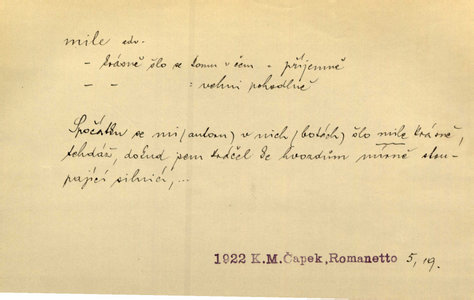 mile adv.
- krásně šlo se komu v čem = příjemně
- - : velmi pohodlně
Spočátku se mi (autoru) v nich (botách) šlo mile krásně,
tehdáž, dokud jsem kráčel ke Hvozdům mírně stou-
pající silnicí, ...
1922 K.M.Čapek, Romanetto 5, 19.